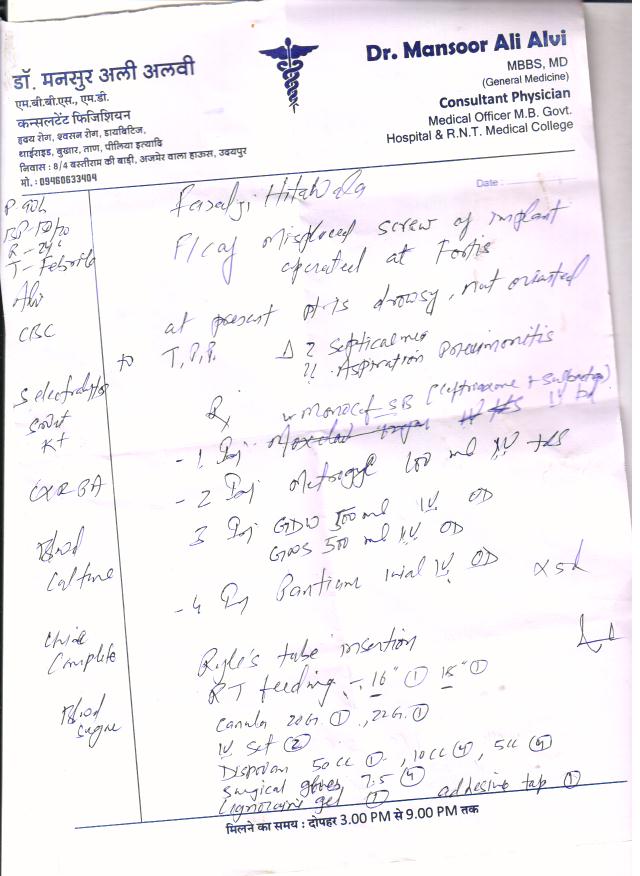 डॉ. मनसुर अली अलवी
एम.बी.बी.एस., एम.डी.
कन्सलटेंट फिजिशियन
हृदय रोग, श्वसन रोग, डायबिटिज,
थाईराइड, बुखार, ताण, पीलिया इत्यादि
निवास : 8/4 बस्तीराम की बाड़ी, अजमेर वाला हाऊस, उदयपुर
मो. : 09460633404
Dr. Mansoor Ali Alvi
MBBS, MD
(General Medicine)
Consultant Physician
Medical Officer M.B. Govt.
Hospital & R.N.T. Medical College
Date :
Hitawala
misplaced screw of implant
operated at Fortis
at present pt is drowsy, not oriented
to T, P, P. Δ ? Septicaemia
?? Aspiration Pneumonitis
Rx
Monocef SB (Ceftriaxone + Sulbactam)
- 1 Inj IV bd
- 2 Inj Metrogyl 100 ml IV tds
3 Inj GDW 500 ml IV OD
GNS 500 ml IV OD
- 4 Inj Pantium 1 vial IV OD x 5d
Ryle's tube insertion
RT feeding - 16" ① 18" ①
Canula 20G. ①, 22G. ①
IV set ②
Dispovan 50 cc ①, 10 cc ④, 5 cc ④
Surgical gloves 7.5 ④
Lignocaine gel ① adhesive tap ①
T - Febrile
CBC
S electrolytes
K+
CXR PA
Blood
Culture
Urine
Complete
Blood
Sugar
मिलने का समय : दोपहर 3.00 PM से 9.00 PM तक